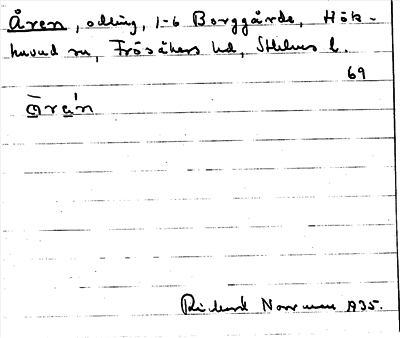 Åren, odling, 1-6 Borggårde, Hök-
huvud sn, Frösåkers hd, Sthlms l.
69
Rickard Norrman 1935.